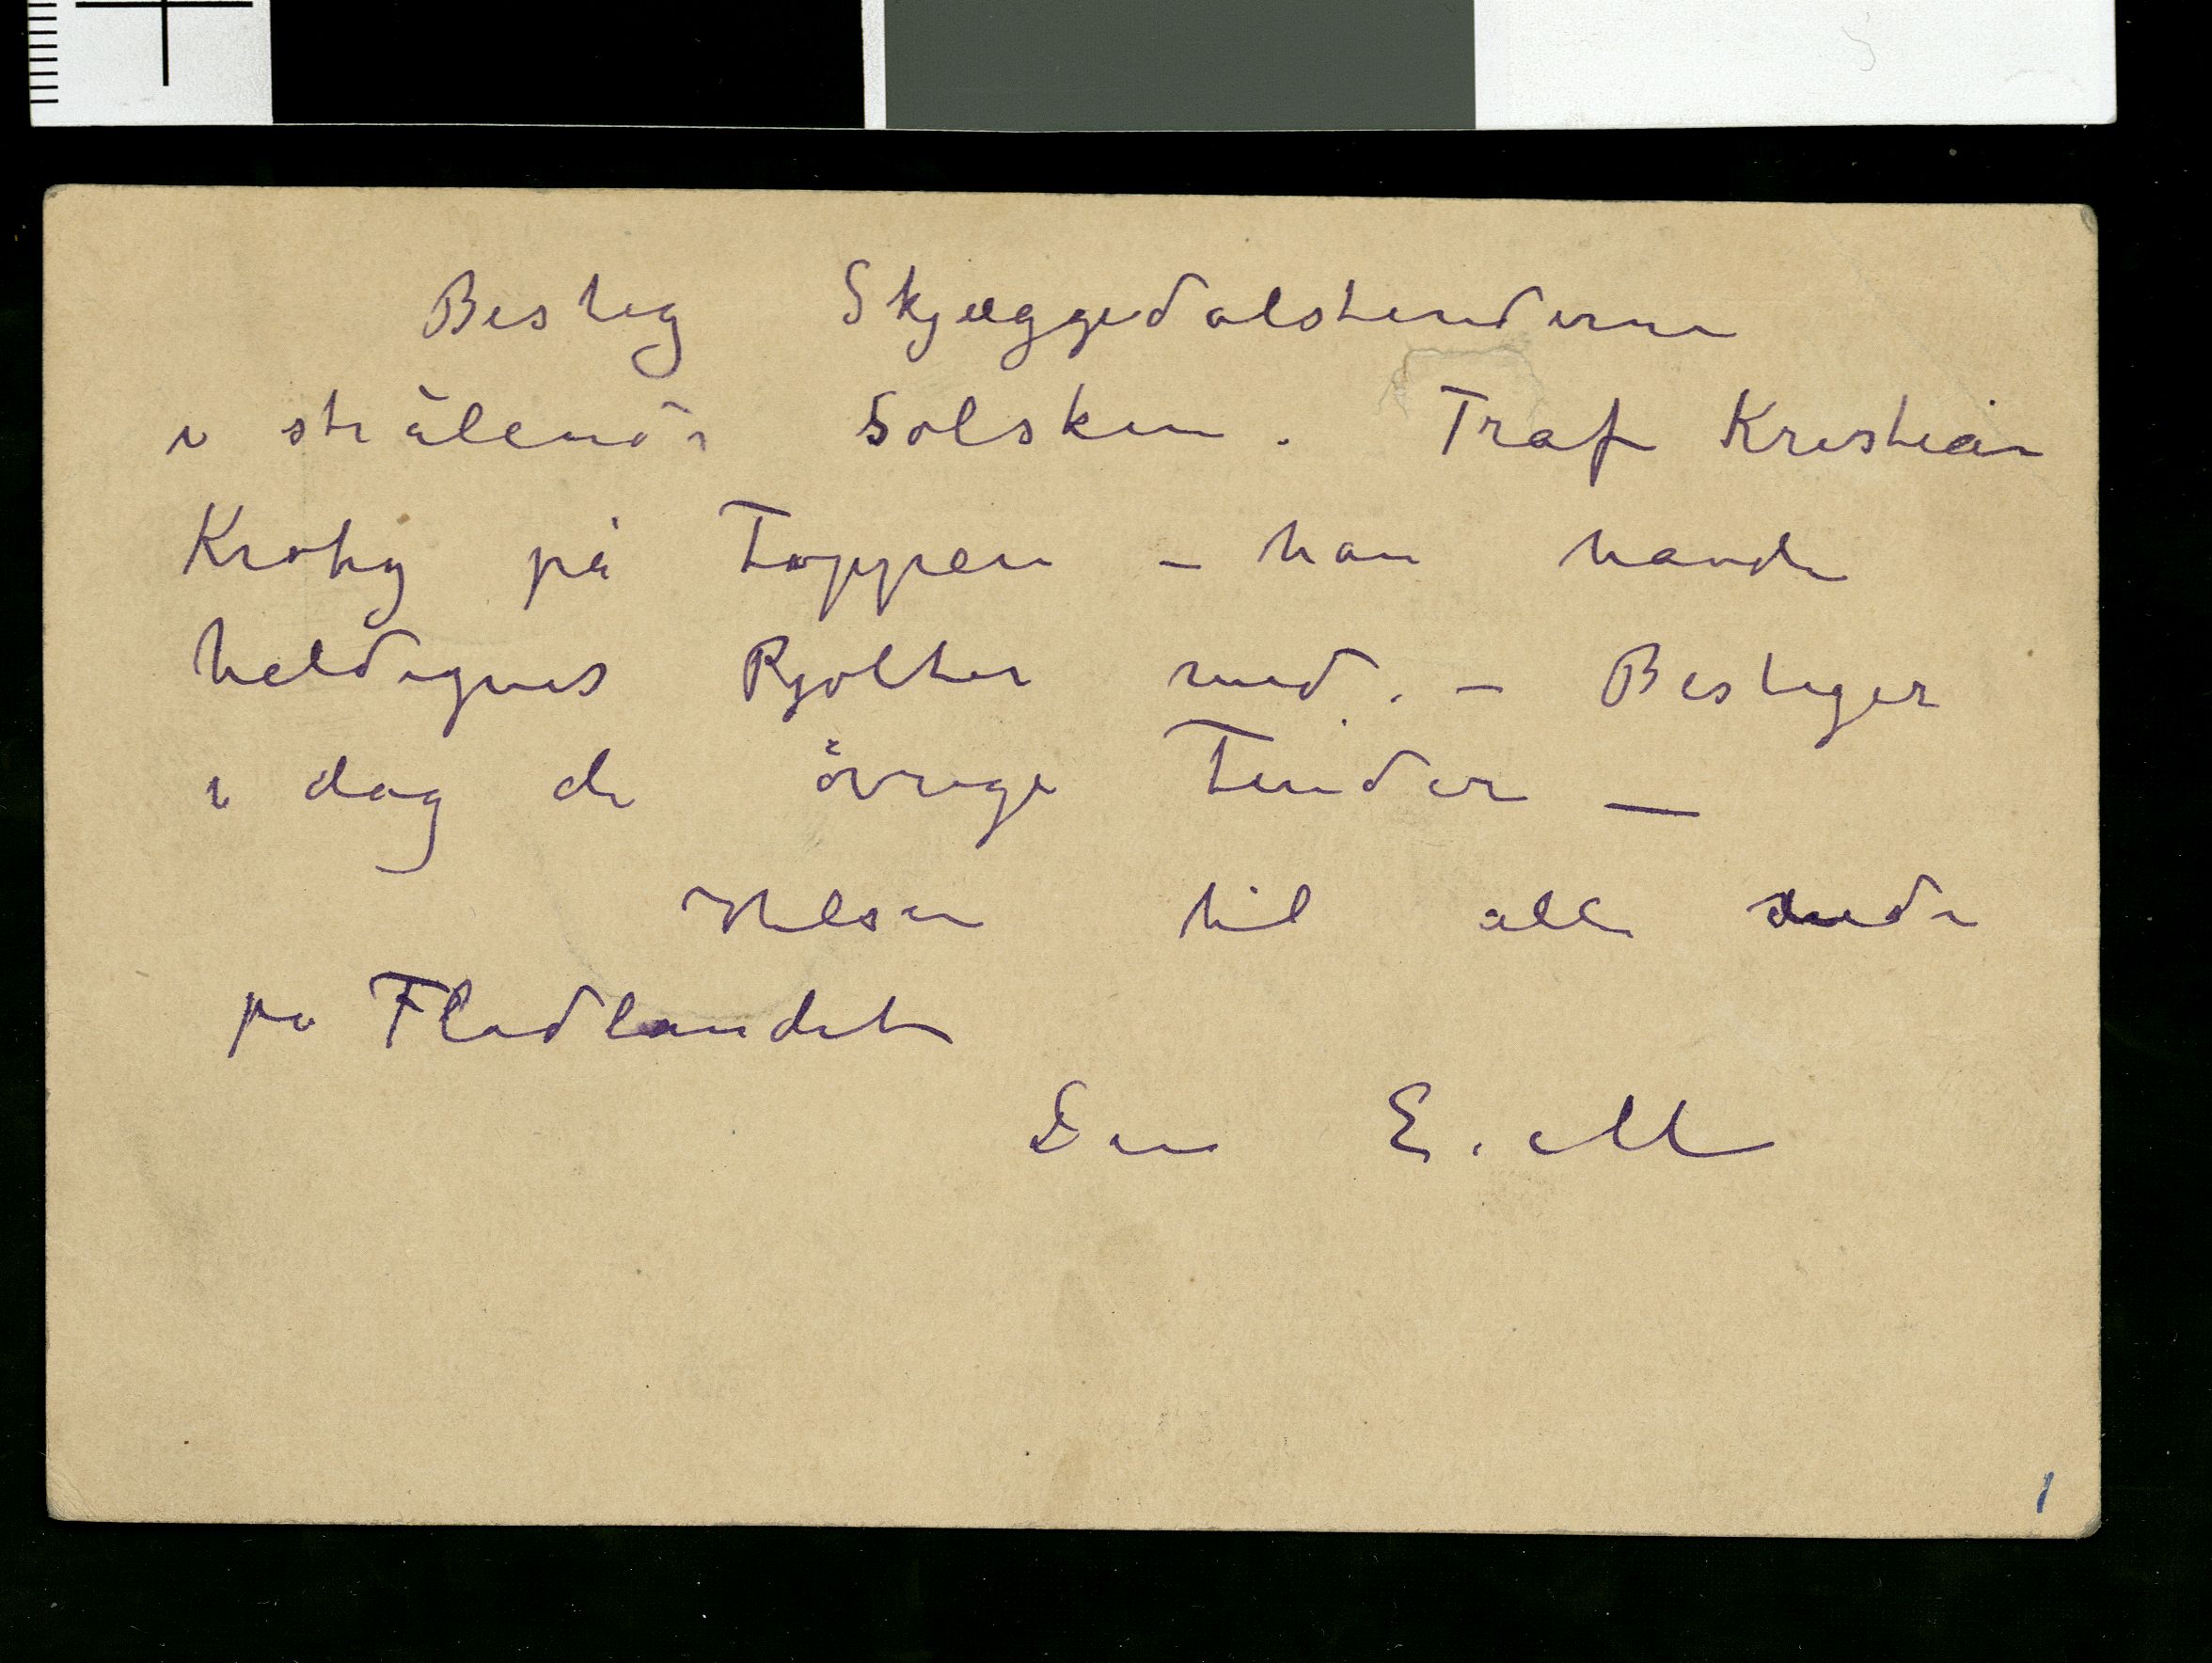 Besteg Skjæggedalstinderne
i strålende Solskin. Traf Kristian
Krohg på Toppen – han havde
heldigvis Pjolter med. – Bestiger
i dag de övrige Tinder —
Hilsen til alle nede
på Fladlandet
Din E. M
1